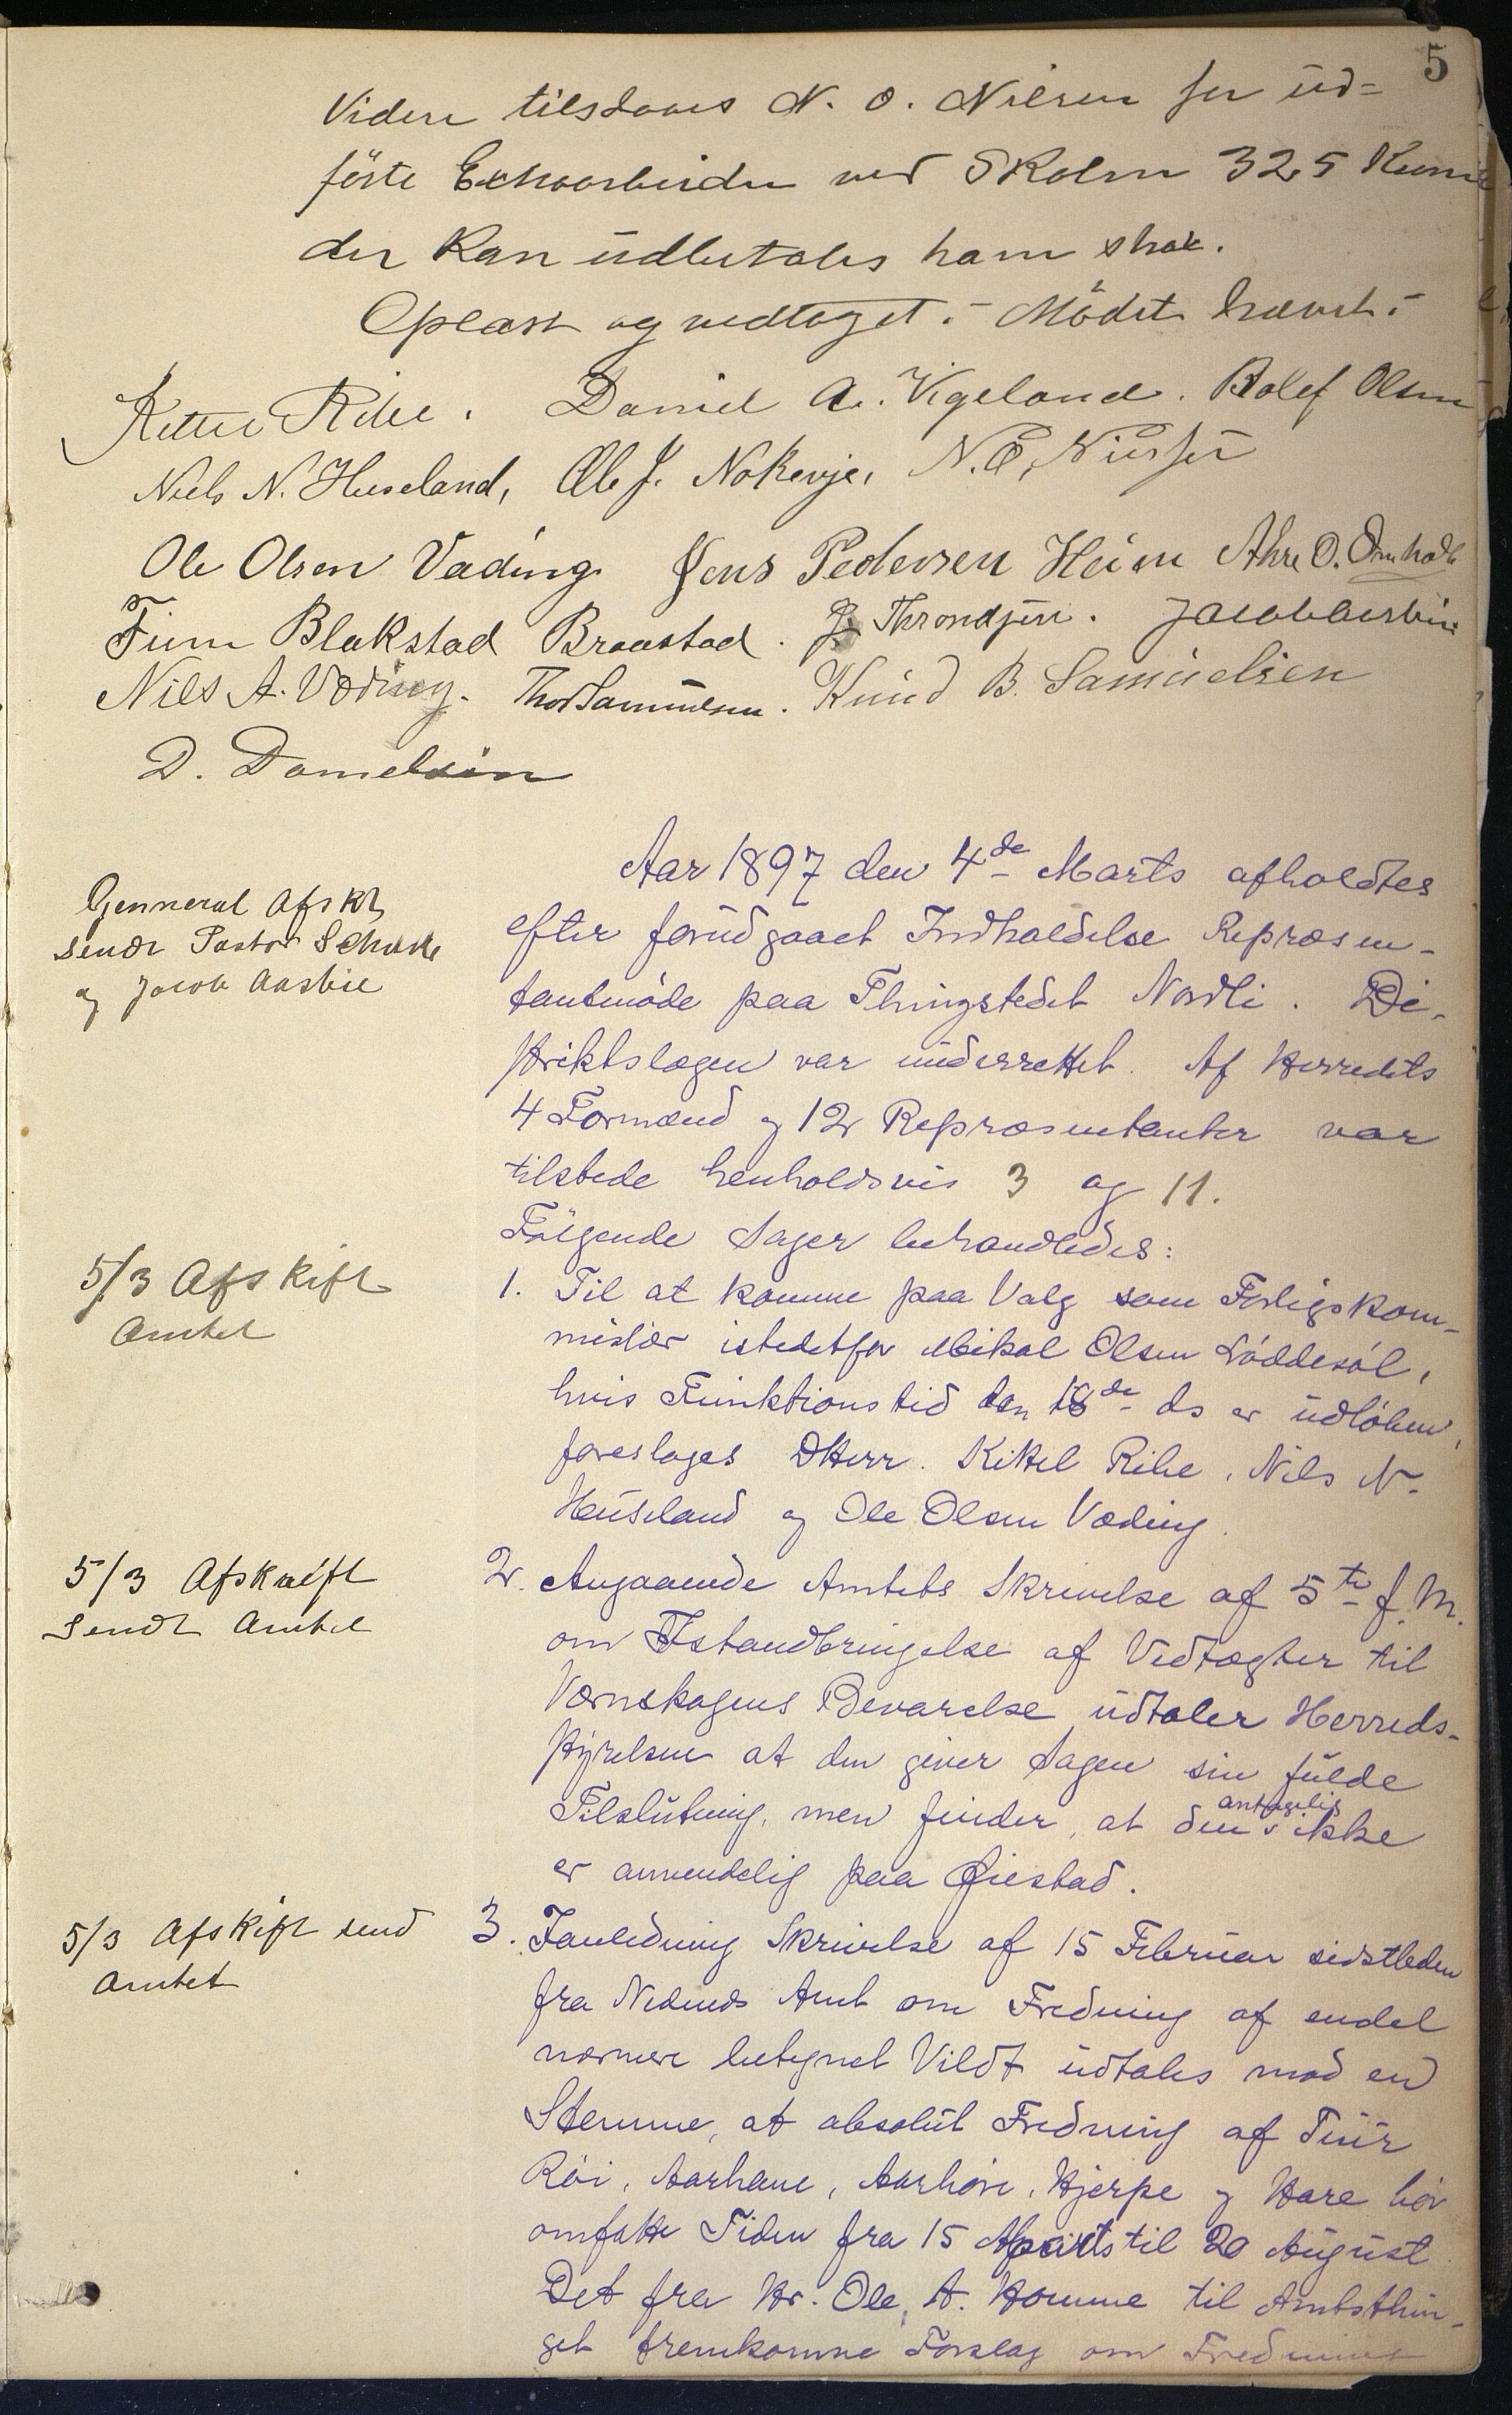 5
Videre tilstaaes N. O. Nilsen for ud=
förte Extraarbeider ved Skolen 325 Kroner
der kan udbetales ham strax.
Oplæst og vedtaget. - Mödet hævet. -
Kittel Ribe. Daniel A. Vigeland. Rolef Olsen
Niels N. Huseland, Ole J. Nokenje, N. O. Nielsen
Ole Olsen Væding Jens Pedersen Heim Ahre O. Omholt
Finn Blakstad Braastad. J. Throndsen. Jacob Aasbie
Nils A. Væding. Thor Samuelsen. Knud B. Samuelsen
D. Danielsen
Aar 1897 den 4de Marts afholdtes
efter forudgaaet Indkaldelse Repræsen-
tantmöde paa Thingstedet Nordli. Di-
striktslægen var underrettet. Af Herredets
4 Formænd og 12 Repræsentanter var
tilstede henholdsvis 3 og 11.
Fölgende Sager behandledes:
Genneral Afskr
sendt Pastor
og Jacob Aasbie
1. Til at komme paa Valg som Forligskom-
missær istedetfor Mikal Olsen Löddesöl,
hvis Funktionstid den 18de ds er udlöben,
foreslages DHerr. Kittel Ribe, Nils N.
Huseland og Ole Olsen Væding.
5/3 Afskrift
Amtet
2. Angaaende Amtets Skrivelse af 5te f. M.
om Istandbringelse af Vedtægter til
Værnskogens Bevarelse udtaler Herreds-
styrelsen at den giver Sagen sin fulde
Tilslutning, men finder, at den antagelig ikke
er anvendelig paa Øiestad.
5/3 Afskrift
Sendt Amtet
3. Ianledning Skrivelse af 15 Februar sidstleden
fra Nedenes Amt om Fredning af endel
nærmere betegnet Vildt udtales mod en
Stemme, at absolut Fredning af Tiur
Röi, Aarhane, Aarhöne, Hjerpe og Hare bör
omfatte Tiden fra 15 Marts til 20 August.
Det fra Hr. Ole A. Homme til Amtsthin-
get fremkomne Forslag om Fredning
5/3 Afskrift send
Amtet